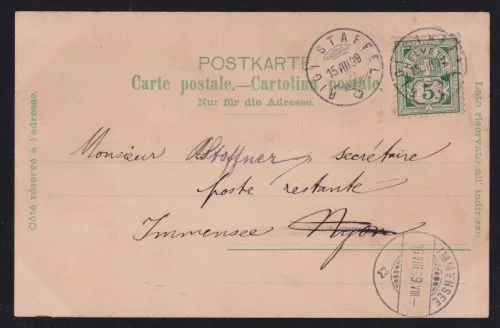 POSTKARTE
Carte postale.—Cartolina postale.
Nur für die Adresse.
Côté réservé à l'adresse.
Lato riservato all' indirizzo
RIGI STAFFEL
15 VIII 99
HELVETIA
5
Monsieur Stoffner, secrétaire
poste restante
Immensee Nyon
IMMENSEE
16.VIII.99.VIII